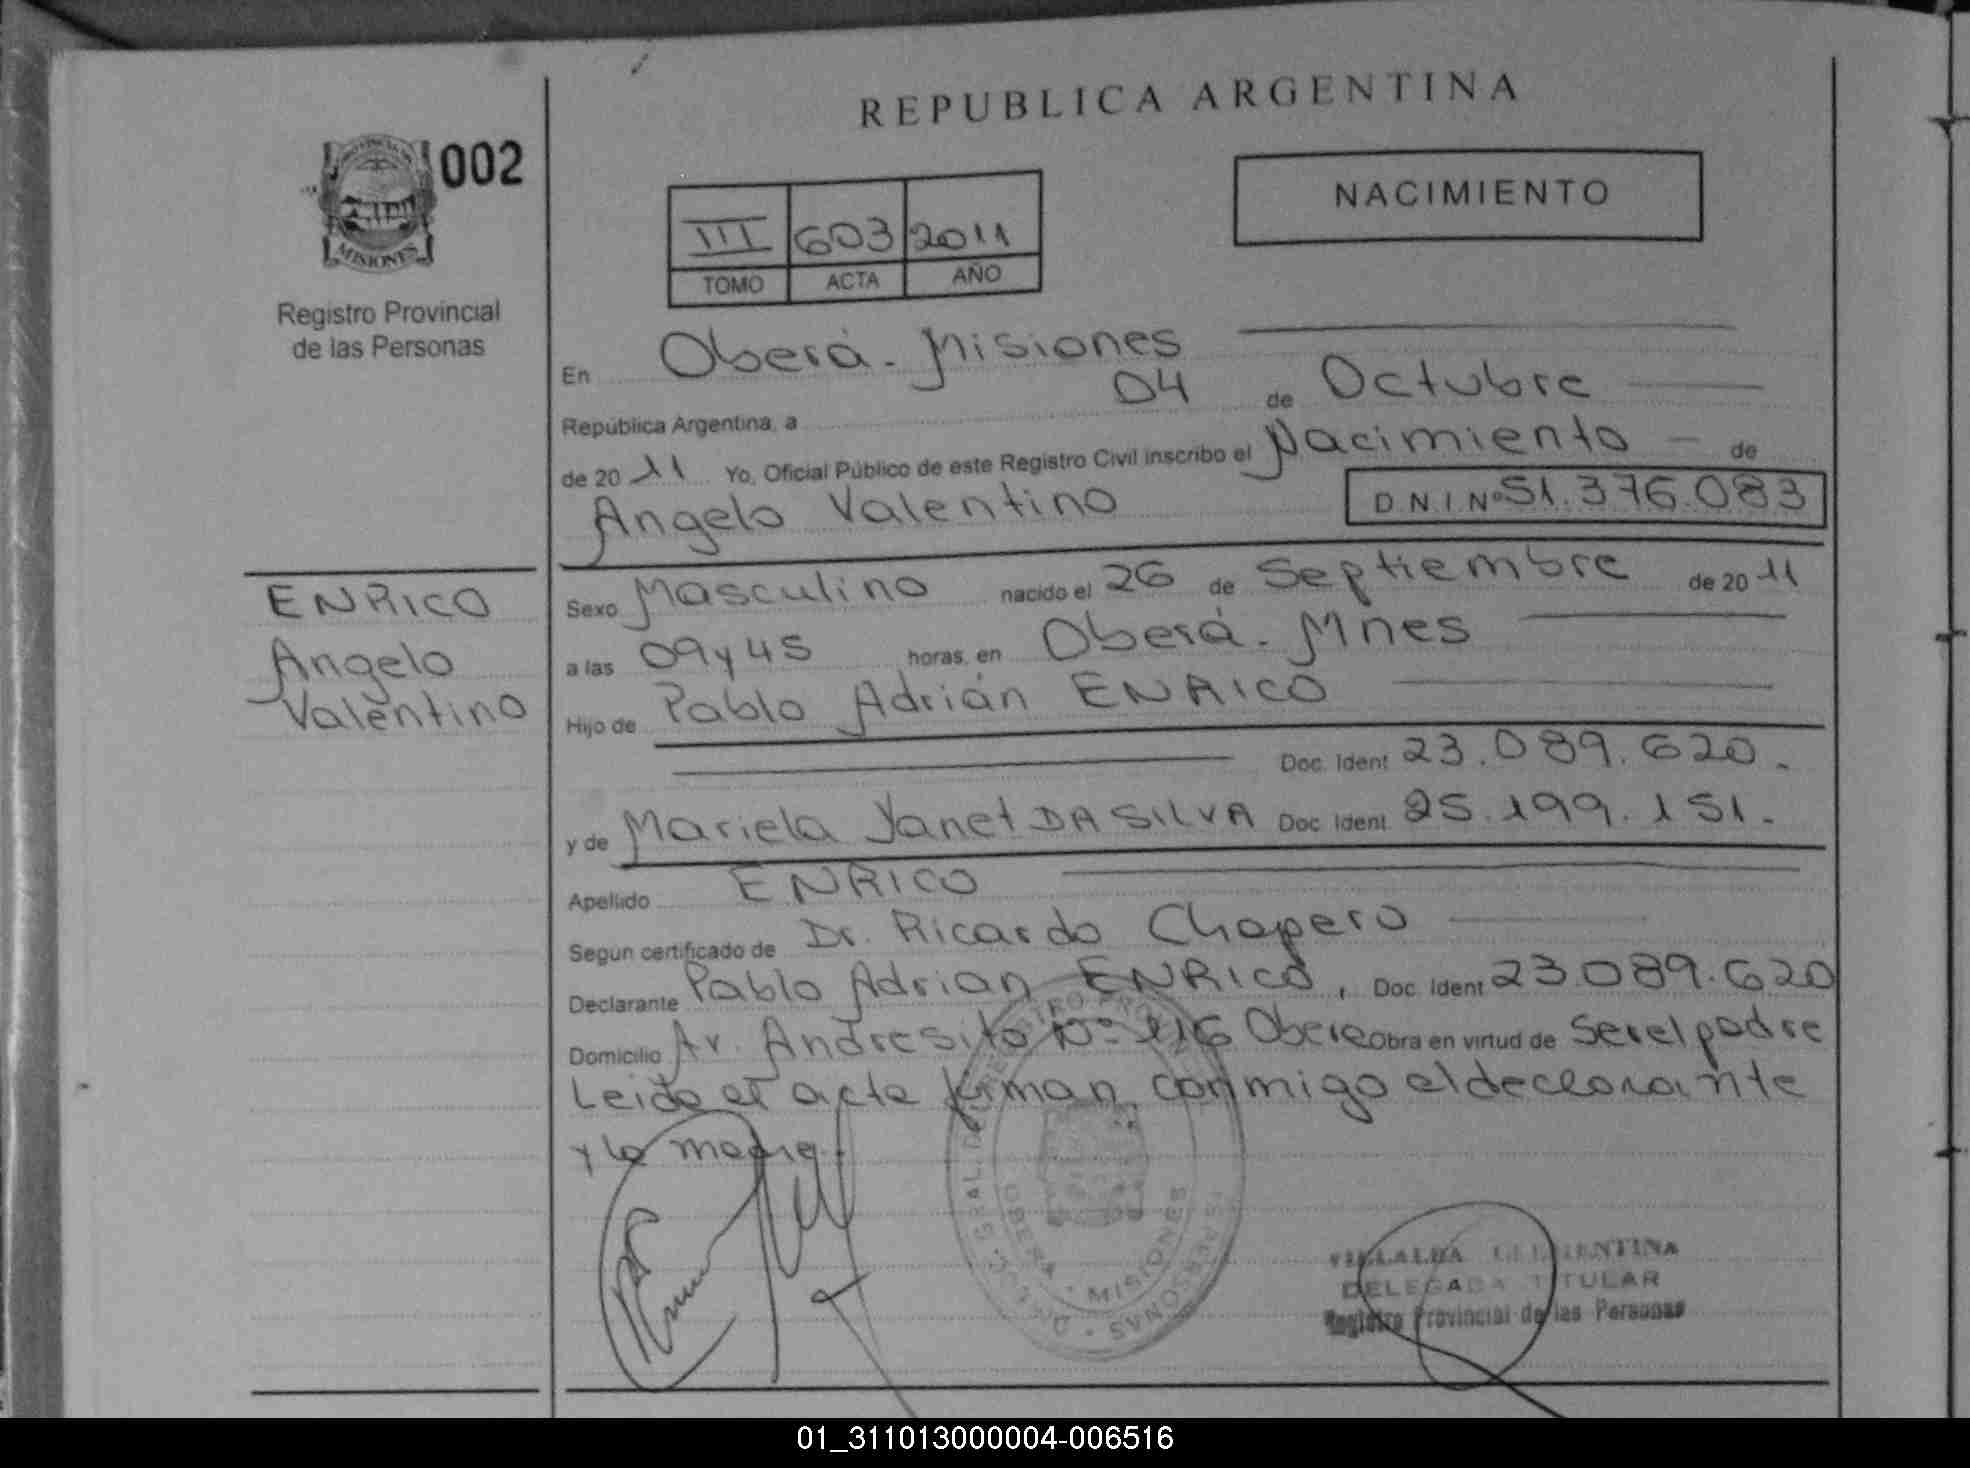 REPUBLICA ARGENTINA
002
MISIONES
Registro Provincial
de las Personas
NACIMIENTO
III 603 2011
TOMO ACTA AÑO
En Oberá - Misiones
República Argentina, a 04 de Octubre
de 20 11 Yo, Oficial Público de este Registro Civil inscribo el Nacimiento de
Angelo Valentino D.N.I Nº 51.376.083
ENRICO
Angelo
Valentino
Sexo Masculino nacido el 26 de Septiembre de 20 11
a las 09 y 45 horas, en Oberá - Mnes
Hijo de Pablo Adrián ENRICO
Doc. Ident 23.089.620.
y de Mariela Yanet DA SILVA Doc. Ident. 25.199.151.
Apellido ENRICO
Según certificado de Dr. Ricardo Chapero
Declarante Pablo Adrian ENRICO, Doc. Ident 23.089.620
Domicilio Av. Andresito Nº 116 Obera Obra en virtud de ser el padre
Leida el acta firman conmigo el declarante
y la madre.
OBERA - MISIONES
VILLALBA CLEMENTINA
DELEGADA TITULAR
Registro Provincial de las Personas
01_311013000004-006516